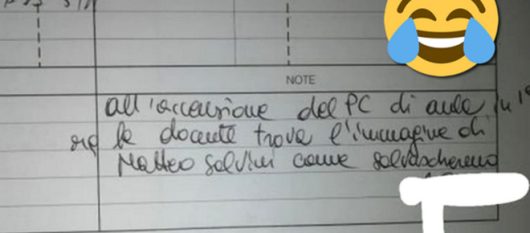 NOTE
all'accensione del PC di aula in 1ª
la docente trova l'immagine di
Matteo Salvini come salvaschermo